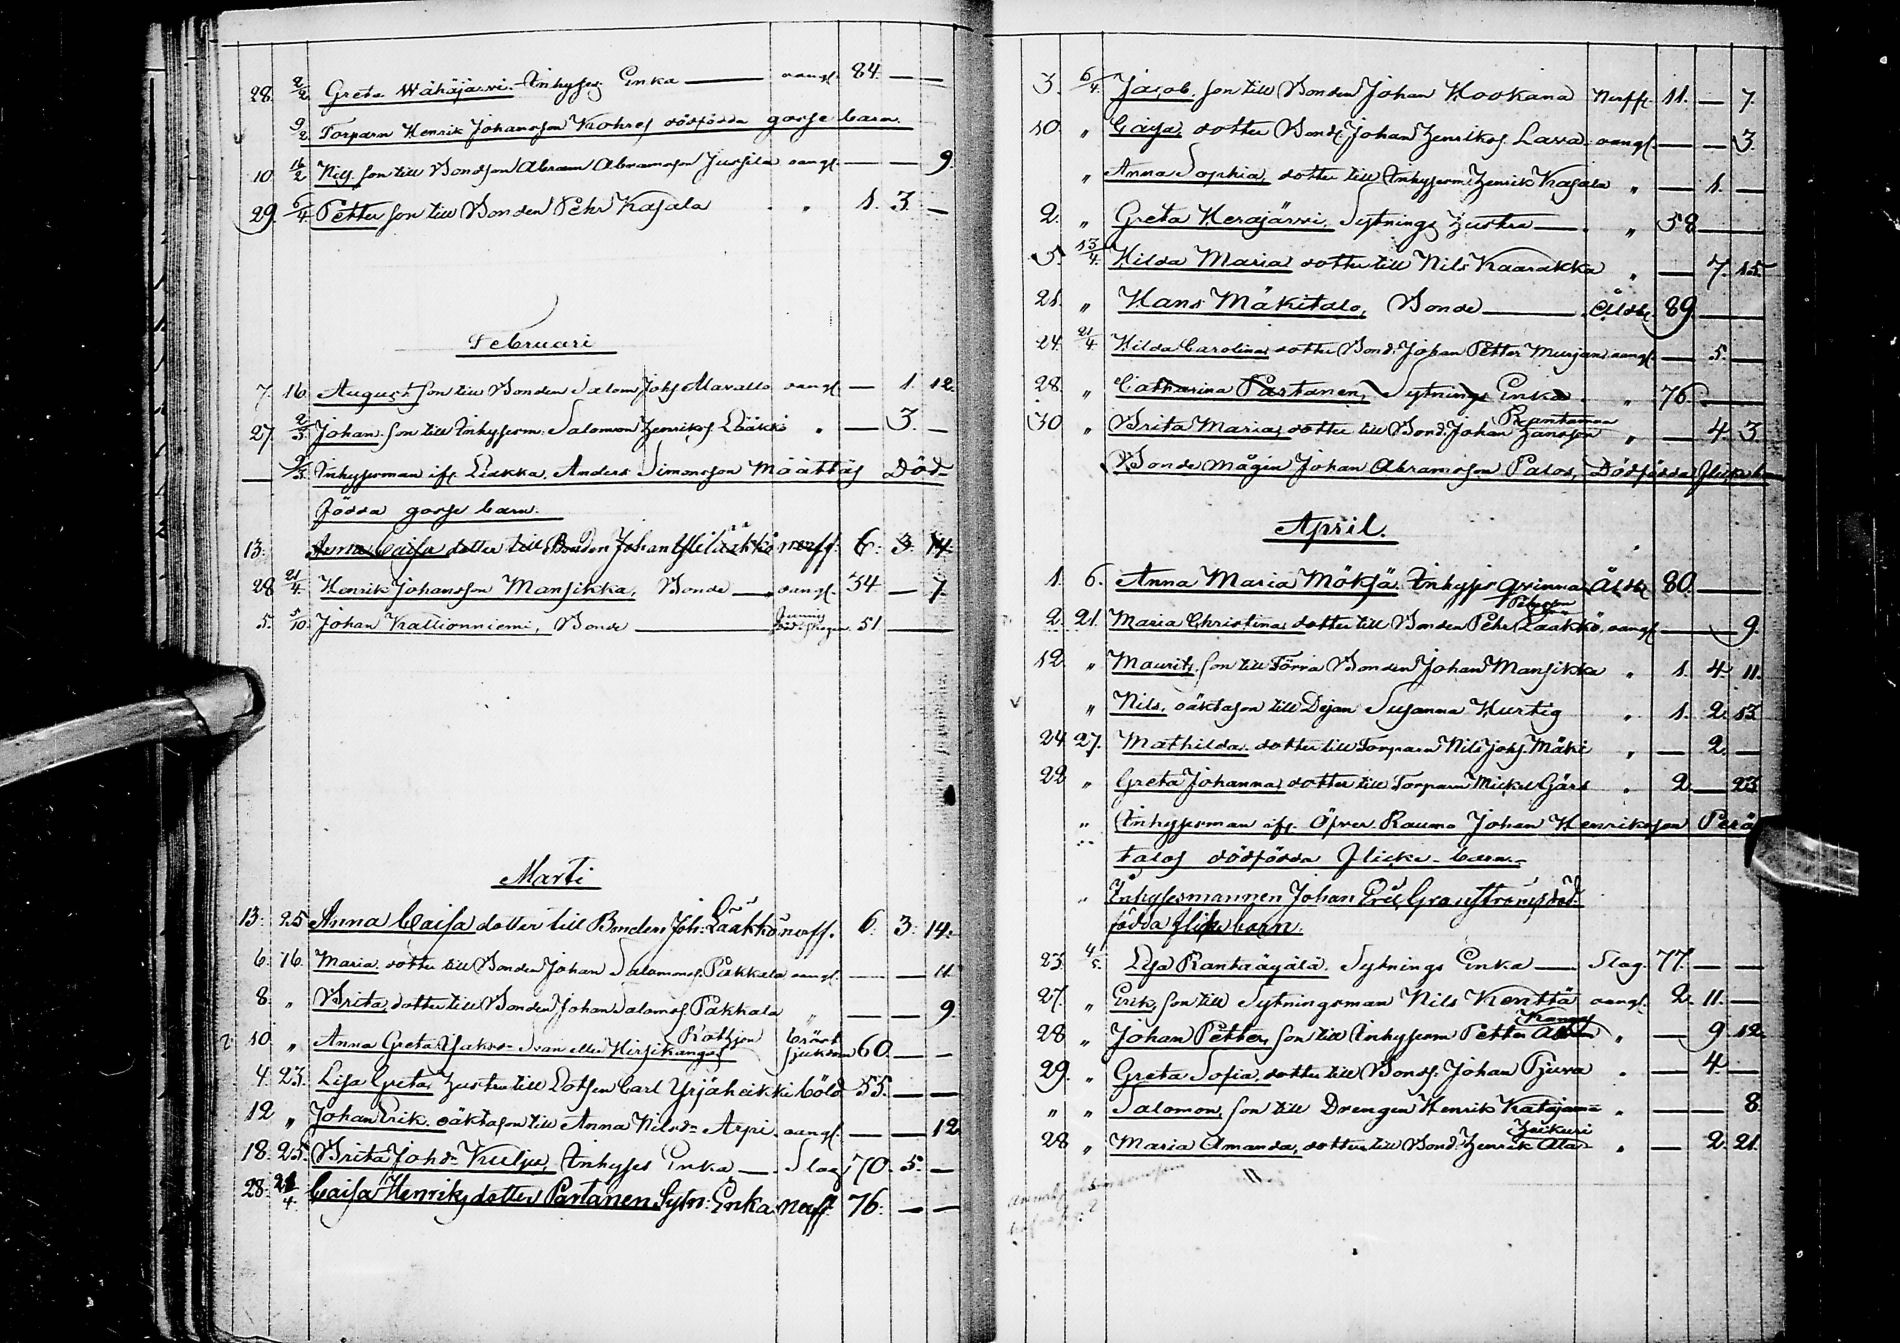 28. 2/2 Greta Wähäjärvi. Inhyses Enka — vangl. 84 — —
9/2 Torparn Henrik Johansson Kohres dödfödda gosse barn.
10 16/2 Nils son till Bondson Abram Abramsson Jussila vangl. — — 9.
29. 6/4 Petter son till Bonden Pehr Kasala " 1. 3. —
Februari
7. 16. August son till Bonden Salom. Johs Mavalto vangl. — 1. 12.
27. 2/3 Johan son till Inhyserm. Salomon Henriks. Lääkkö " — 3. —
— 9/3 Inhysesman ifr. Liakka, Anders Simonsson Määttäs Död-
födda gosse barn.
13. Anna Caisa dotter till Bonden Johan Lääkkö nerff. 6. 3. 14.
28 21/4 Henrik Johansson Mansikka, Bonde — vangl. 34 — 7.
5. 5/10. Johan Kallionniemi, Bonde — 51 —
Marti
13. 25 Anna Caisa dotter till Bonden Joh. Lääkkö nerff. 6. 3. 14.
6. 16. Maria dotter till Bonden Johan Salomons. Pakkala vangl. — — 11
8. " Brita, dotter till Bonden Johan Salomos. Pakkala " — — 9.
10. " Anna Greta Jakos-dr Svan eller Hirsikangas bröst sjukdom 60. — —
4. 23. Lisa Greta, Hustru till Lotsen Carl Yrjäheikki Cöld 55. — —
12 " Johan Erik. oäktason till Anna Nilsdr Arpi. vangl. — — 12
18. 25. Brita Johdr Kulju, Inhyses Enka — Slag 70. 5. —
28. 21/4. Caisa Henriksdotter Partanen Sytn. Enka nerff. 76. — —
3. 6/4. Jacob. son till Bonden Johan Hookana Nerff. 11. — 7.
10. " Caisa, dotter Bonds. Johan Henriks. Lava. vangl. — — 3.
" Anna Sophia, dotter till Inhyserm. Henrik Kasala " — 1. —
2. " Greta Herajärvi, Sytnings Hustru — " 58 —
5. 13/4. Hilda Maria, dotter till Nils Kaarakka " — 7. 15.
21. " Hans Mäkitalo, Bonde — Åldd. 89. —
24. 21/4 Hilda Carolina, dotter Bond. Johan Petter Murjan. vangl. — 5. —
28. " Catharina Partanen, Sytnings Enka. " 76. —
30 " Brita Maria, dotter till Bond. Johan Hansson Rantamaa " — 4. 3.
Bonde mågen Johan Abramsson Palos, Dödfödda flicke barn
April.
1. 6. Anna Maria Möksä. Inhyses qvinna Åldd. 80. —
2. 21. Maria Christina, dotter till Bonden Pehr Laakkö. vangl. — — 9.
12 " Maurits, son till Förra Bonden Johan Mansikka " 1. 4. 11.
" Nils, oäktason till Pejan Susanna Hurtig " 1. 2. 13.
24 27. Mathilda. dotter till Torparn Nils Johs. Mäki " — 2. —
22 " Greta Johanna, dotter till Torparn Mickel Gärs " 2. — 23
" Inhysesman ifr. Öfver Raumo Johan Henriksson Perä
talos dödfödda flicke-barn.
" Inhylesmannen Johan Eric Granströms död-
födda flickebarn.
23. 4/5. Lisa Rantaäyälä. Sytnings Enka — Slag. 77. — —
27. " Erik, son till Sytningsman Nils Kenttä vangl. 2. 11. —
28 " Johan Petter, son till Inhyserm. Petter " — 9. 12.
29. " Greta Sofia, dotter till Bonds. Johan Pjuva " — 4 —
" " Salomon, son till Drengen Henrik Katajama " — — 8.
28 " Maria Amanda, dotter till Bond. Henrik Heikuri " — 2. 21.